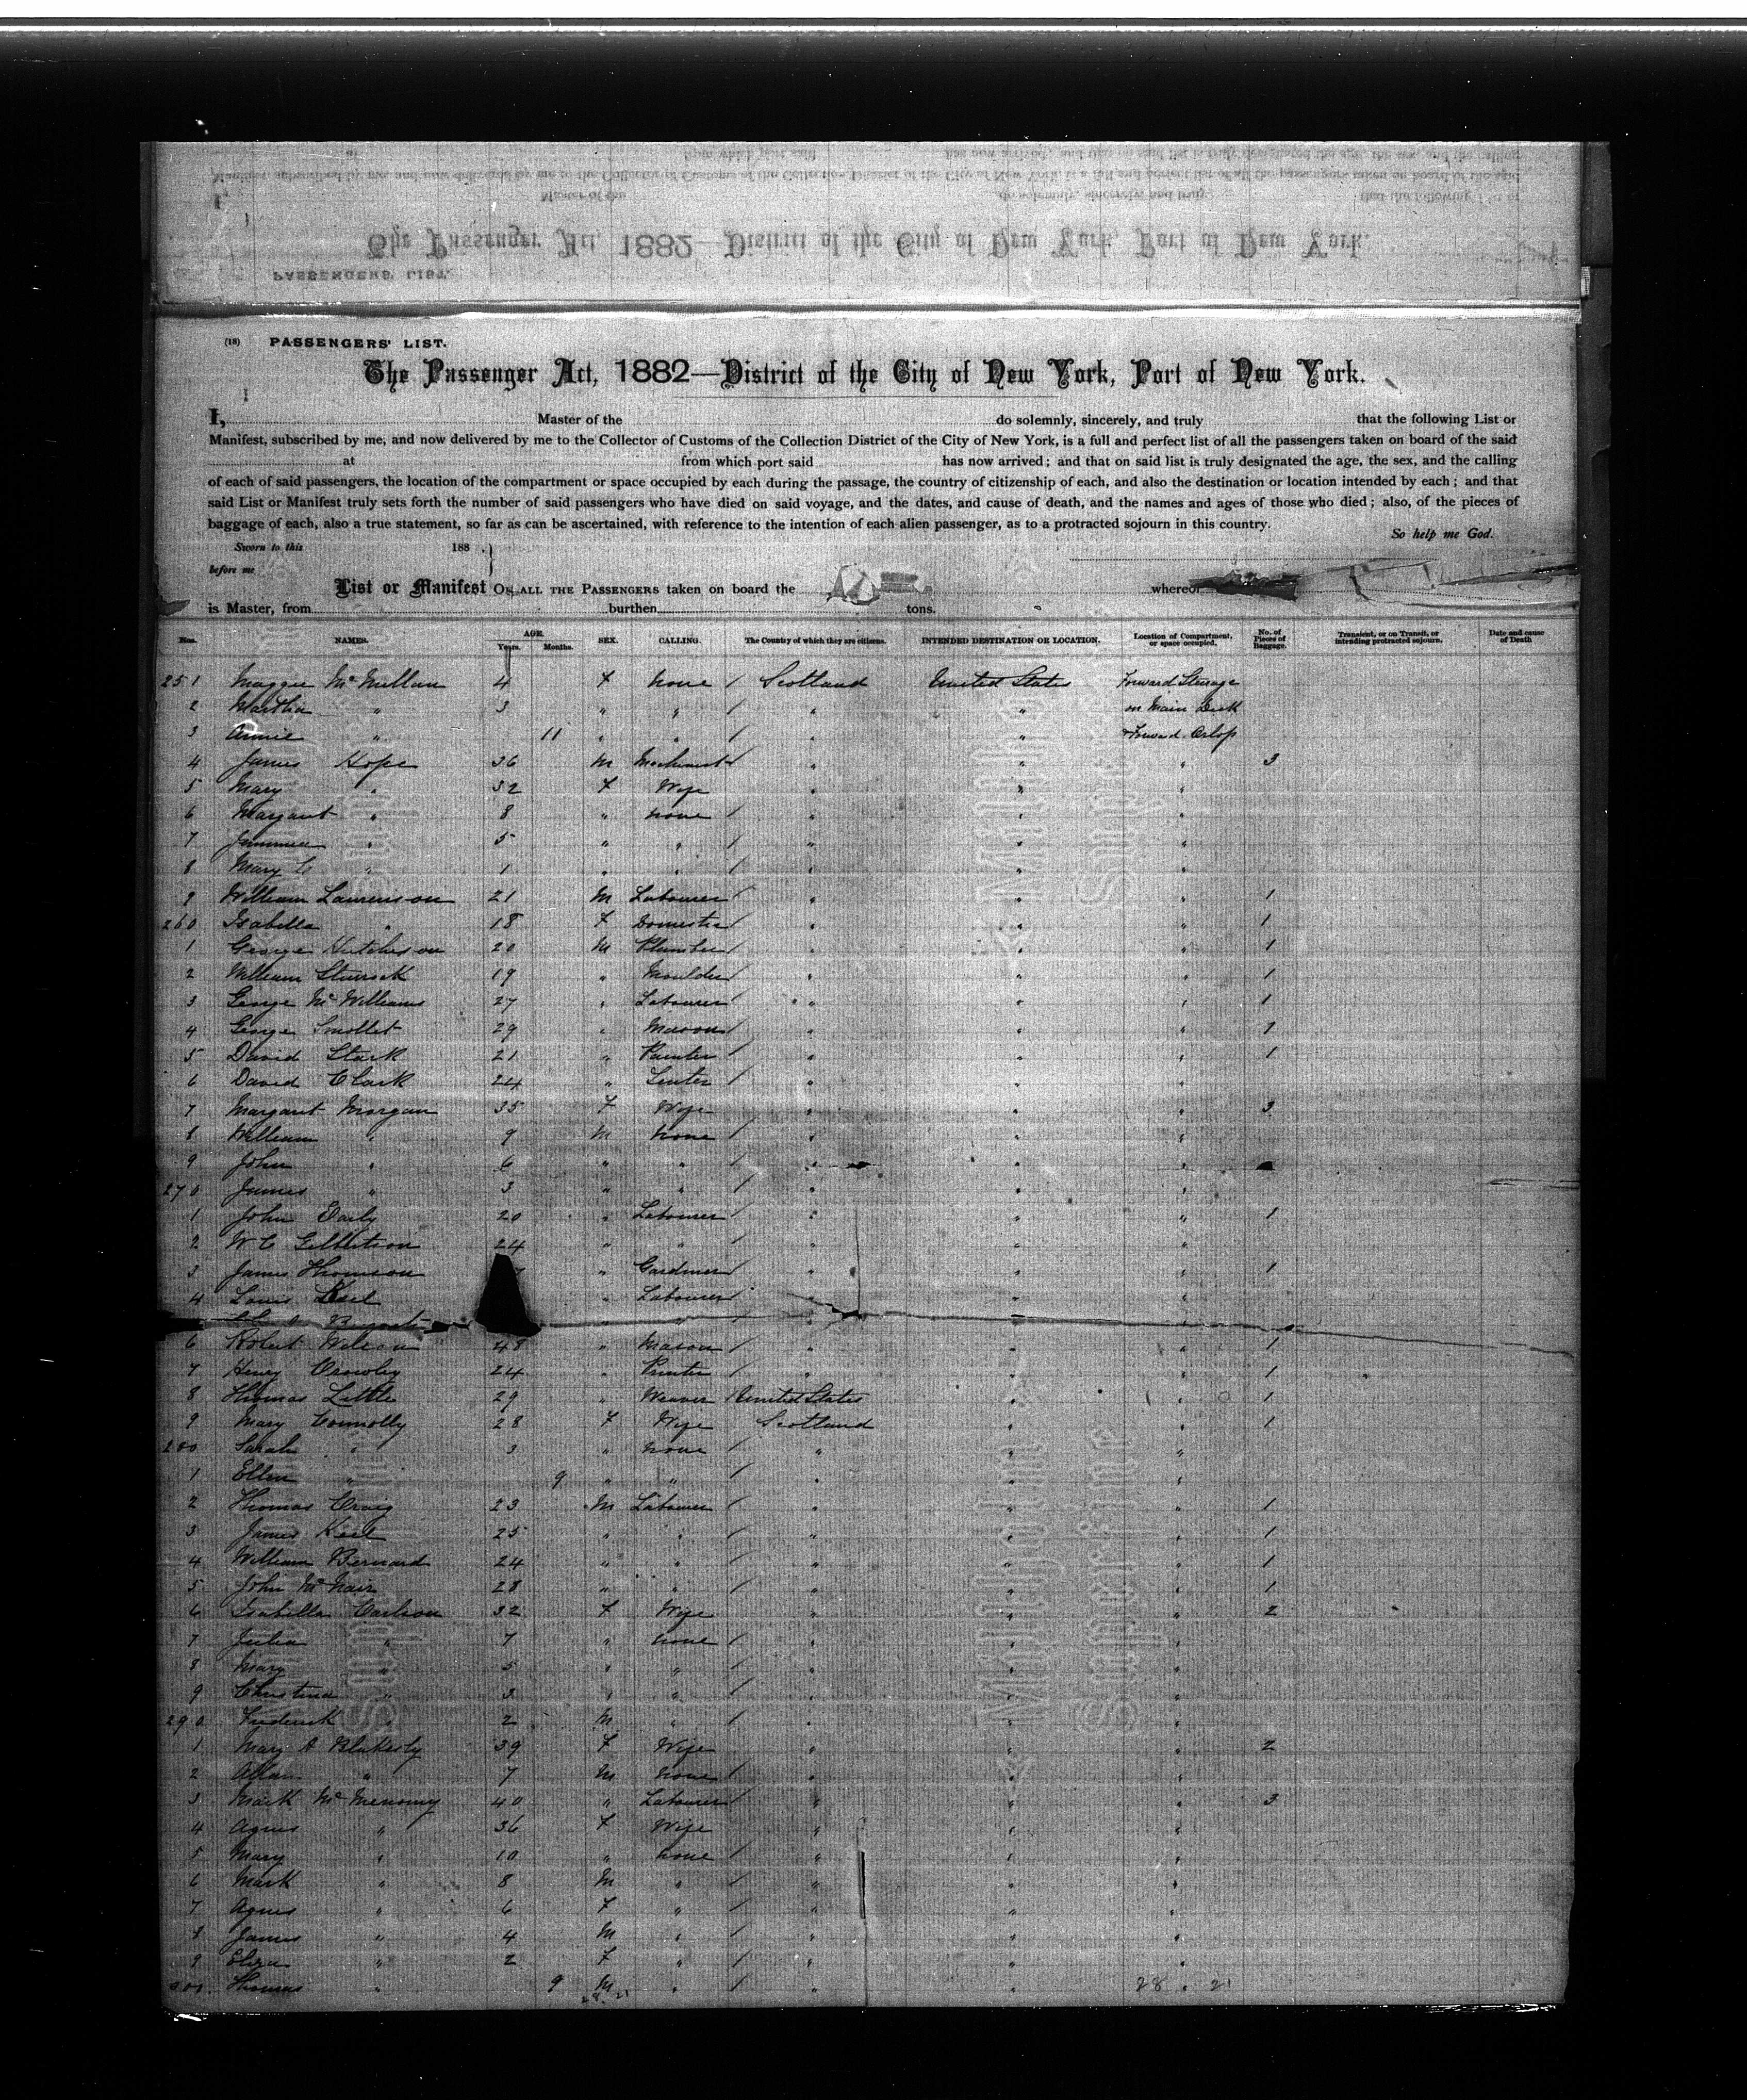 (18) PASSENGERS' LIST.
The Passenger Act, 1882—District of the City of New York, Port of New York.
I, Master of the do solemnly, sincerely, and truly that the following List or
Manifest, subscribed by me, and now delivered by me to the Collector of Customs of the Collection District of the City of New York, is a full and perfect list of all the passengers taken on board of the said
at from which port said has now arrived; and that on said list is truly designated the age, the sex, and the calling
of each of said passengers, the location of the compartment or space occupied by each during the passage, the country of citizenship of each, and also the destination or location intended by each; and that
said List or Manifest truly sets forth the number of said passengers who have died on said voyage, and the dates, and cause of death, and the names and ages of those who died; also, of the pieces of
baggage of each, also a true statement, so far as can be ascertained, with reference to the intention of each alien passenger, as to a protracted sojourn in this country.
So help me God.
Sworn to this 188
before me
List or Manifest OF ALL THE PASSENGERS taken on board the whereof
is Master, from burthen tons.
Nos. NAMES. AGE. Years. Months. SEX. CALLING. The Country of which they are citizens. INTENDED DESTINATION OR LOCATION. Location of Compartment, or space occupied. No. of Pieces of Baggage. Transient, or on Transit, or intending protracted sojourn. Date and cause of Death
251 Maggie McMillan 4 F None / Scotland United States Forward Steerage
2 Martha " 3 " " / " " on Main Deck
3 Annie " 11 " " / " " & Forward Orlop
4 James Hope 36 M / " " " 3
5 Mary " 32 F Wife " " "
6 Margaret " 8 " None / " " "
7 " 5 " " / " " "
8 Mary C " 1 " " / " " "
9 William Laurenson 21 M Labourer / " " " 1
260 Isabella " 18 F Domestic / " " " 1
1 George Hutcheson 20 M Plumber / " " " 1
2 William Sturrock 19 " Moulder / " " " 1
3 George McWilliams 27 " Labourer / " " " 1
4 George Smollet 29 " Mason / " " " 1
5 David Stark 21 " Painter / " " " 1
6 David Clark 24 " / " " "
7 Margaret Morgan 35 F Wife " " " 3
8 William " 9 M None / " " "
9 John " 6 " " / " " "
270 James " 3 " " / " " "
1 John Daily 20 " Labourer / " " " 1
2 W C 24 " " / " " "
3 James Thomson " Gardener / " " " 1
4 Louis " Labourer / " " "
6 Robert Wilson 48 " Mason / " " " 1
7 Henry Crowley 24 " Printer / " " " 1
8 Thomas Little 29 " Weaver / United States " " 1
9 Mary Connolly 28 F Wife Scotland " " 1
280 Sarah " 3 " None / " " "
1 Ellen " 9 " " / " " "
2 Thomas Craig 23 M Labourer / " " " 1
3 James Keil 25 " " / " " " 1
4 William Bernard 24 " " / " " " 1
5 John McNair 28 " " / " " " 1
6 Isabella Carlson 32 F Wife " " " 2
7 Julia " 7 " None / " " "
8 Mary " 5 " " / " " "
9 Christina " 3 " " / " " "
290 Frederick " 2 M " / " " "
1 Mary A Blakesly 39 F Wife " " " 2
2 Allan " 7 M None / " " "
3 Mark McMenomy 40 " Labourer / " " " 3
4 Agnes " 36 F Wife " " "
5 Mary " 10 " None / " " "
6 Mark " 8 M " / " " "
7 Agnes " 6 F " / " " "
8 James " 4 M " / " " "
9 Eliza " 2 F " / " " "
300 Thomas " 9 M " / " "
28 . 21